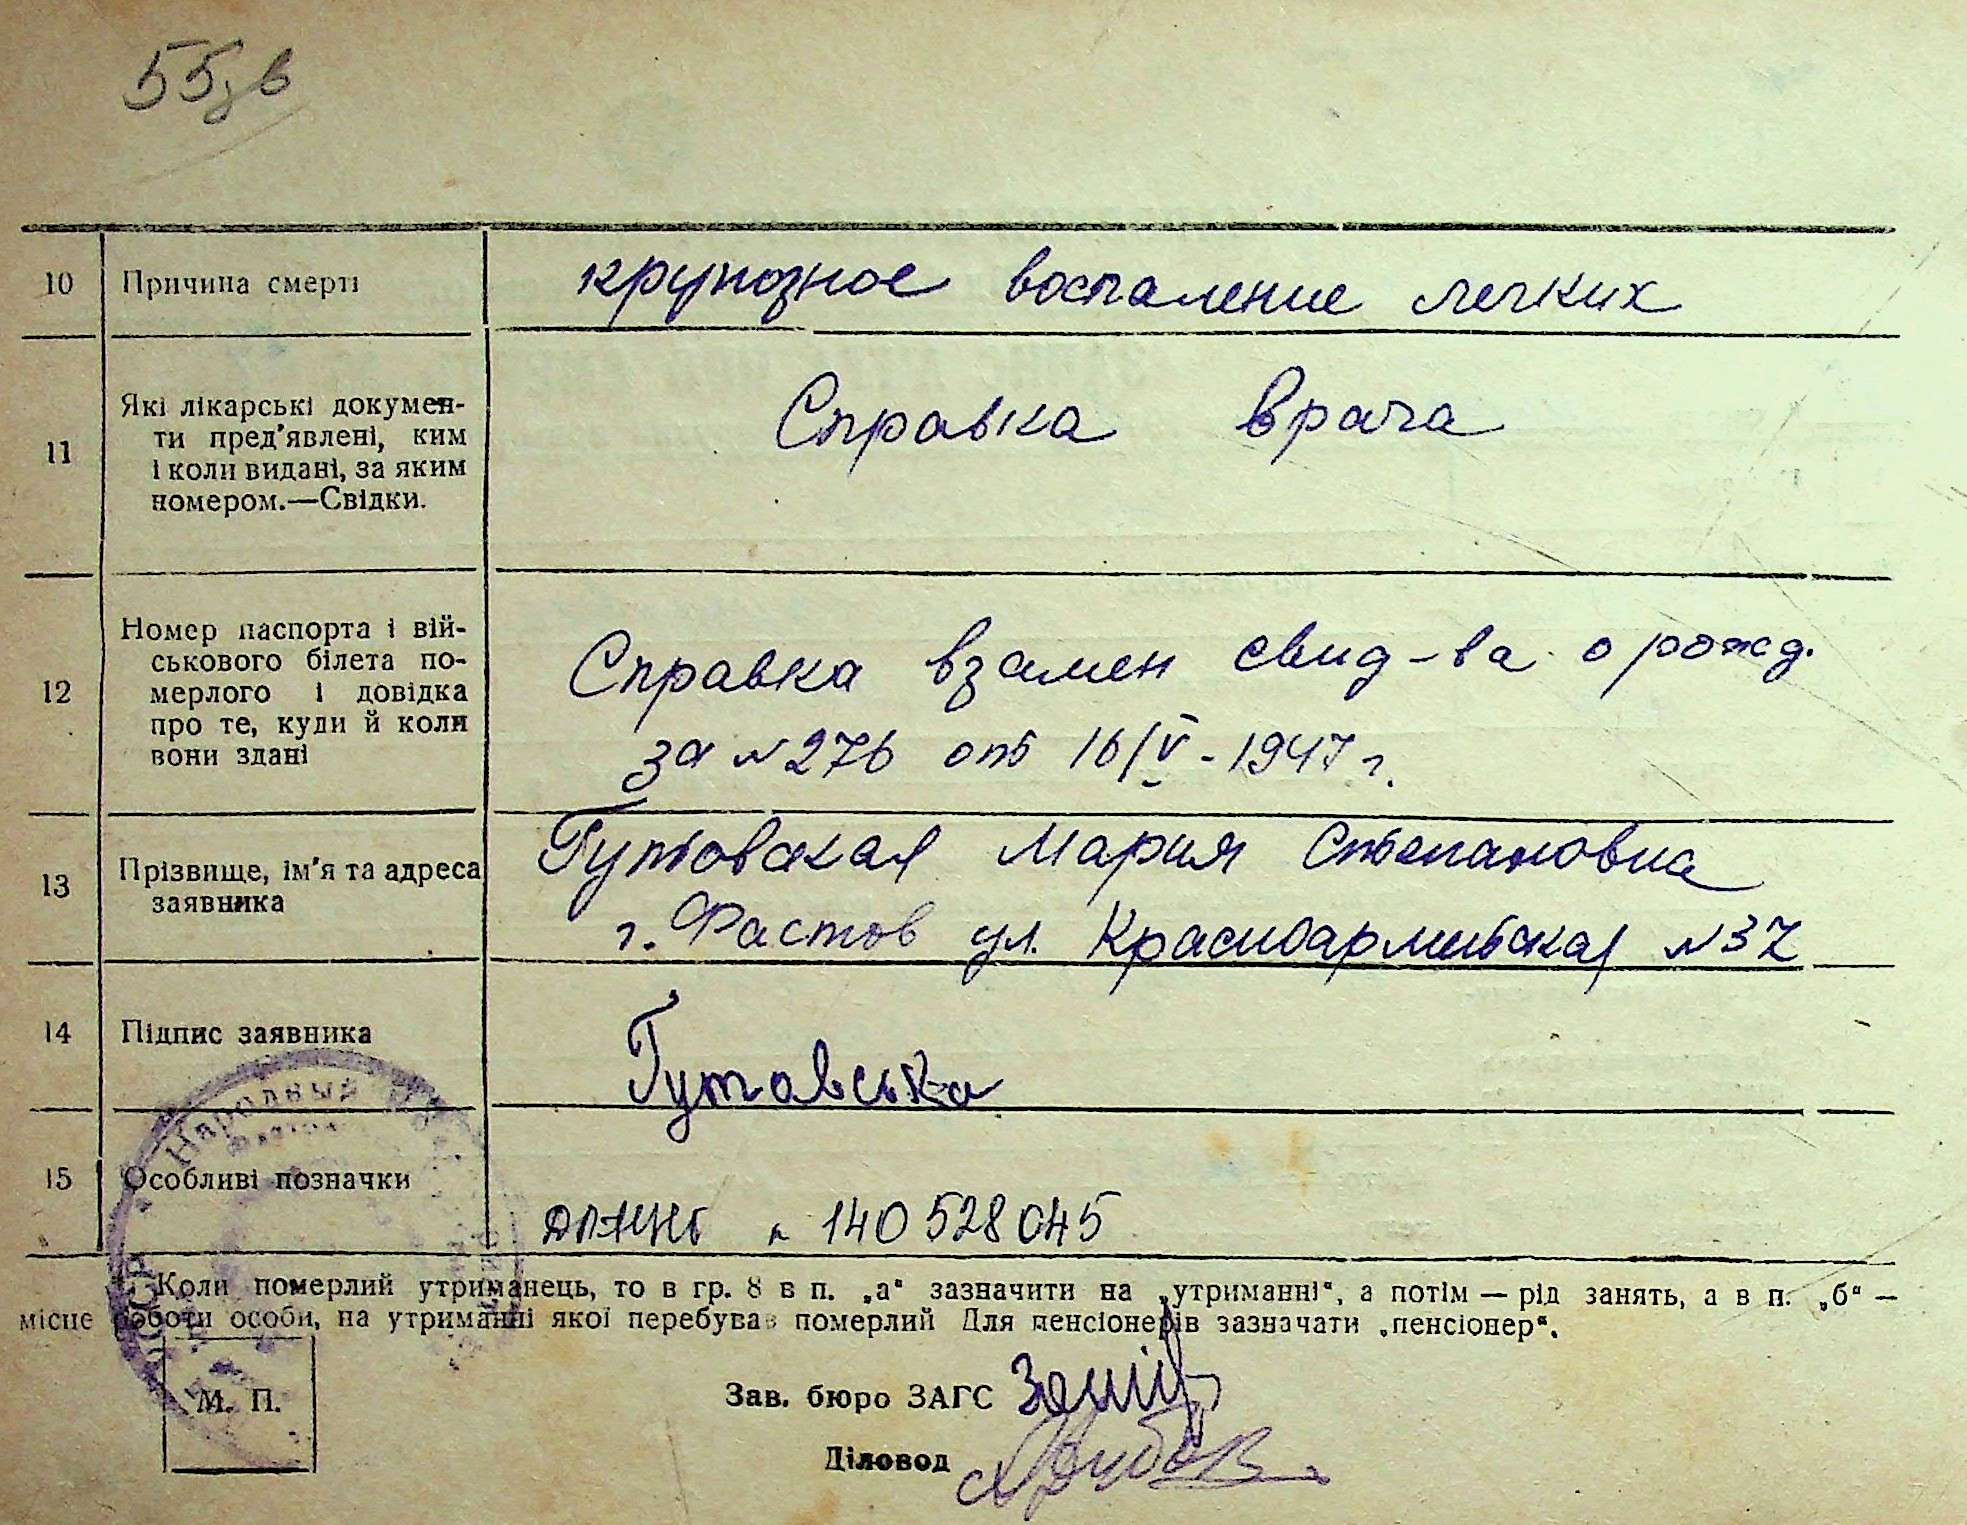 55зв
10 Причина смерті крупозное воспаление легких
11 Які лікарські докумен-
ти пред'явлені, ким
і коли видані, за яким
номером.—Свідки.
Справка врача
12 Номер паспорта і вій-
ськового білета по-
мерлого і довідка
про те, куди й коли
вони здані
Справка взамен свид-ва о рожд.
за №276 от 16/V-1947 г.
13 Прізвище, ім'я та адреса
заявника
Гутовская Мария Степановна
г. Фастов ул. Красноармейская №37
14 Підпис заявника Гутовська
15 Особливі позначки
140528045
Народный
СССР
Коли померлий утриманець, то в гр. 8 в п. „а“ зазначити на „утриманні“, а потім — рід занять, а в п. „б“ —
місце роботи особи, на утриманні якої перебував померлий Для пенсіонерів зазначати „пенсіонер“.
М. П.
Зав. бюро ЗАГС
Діловод